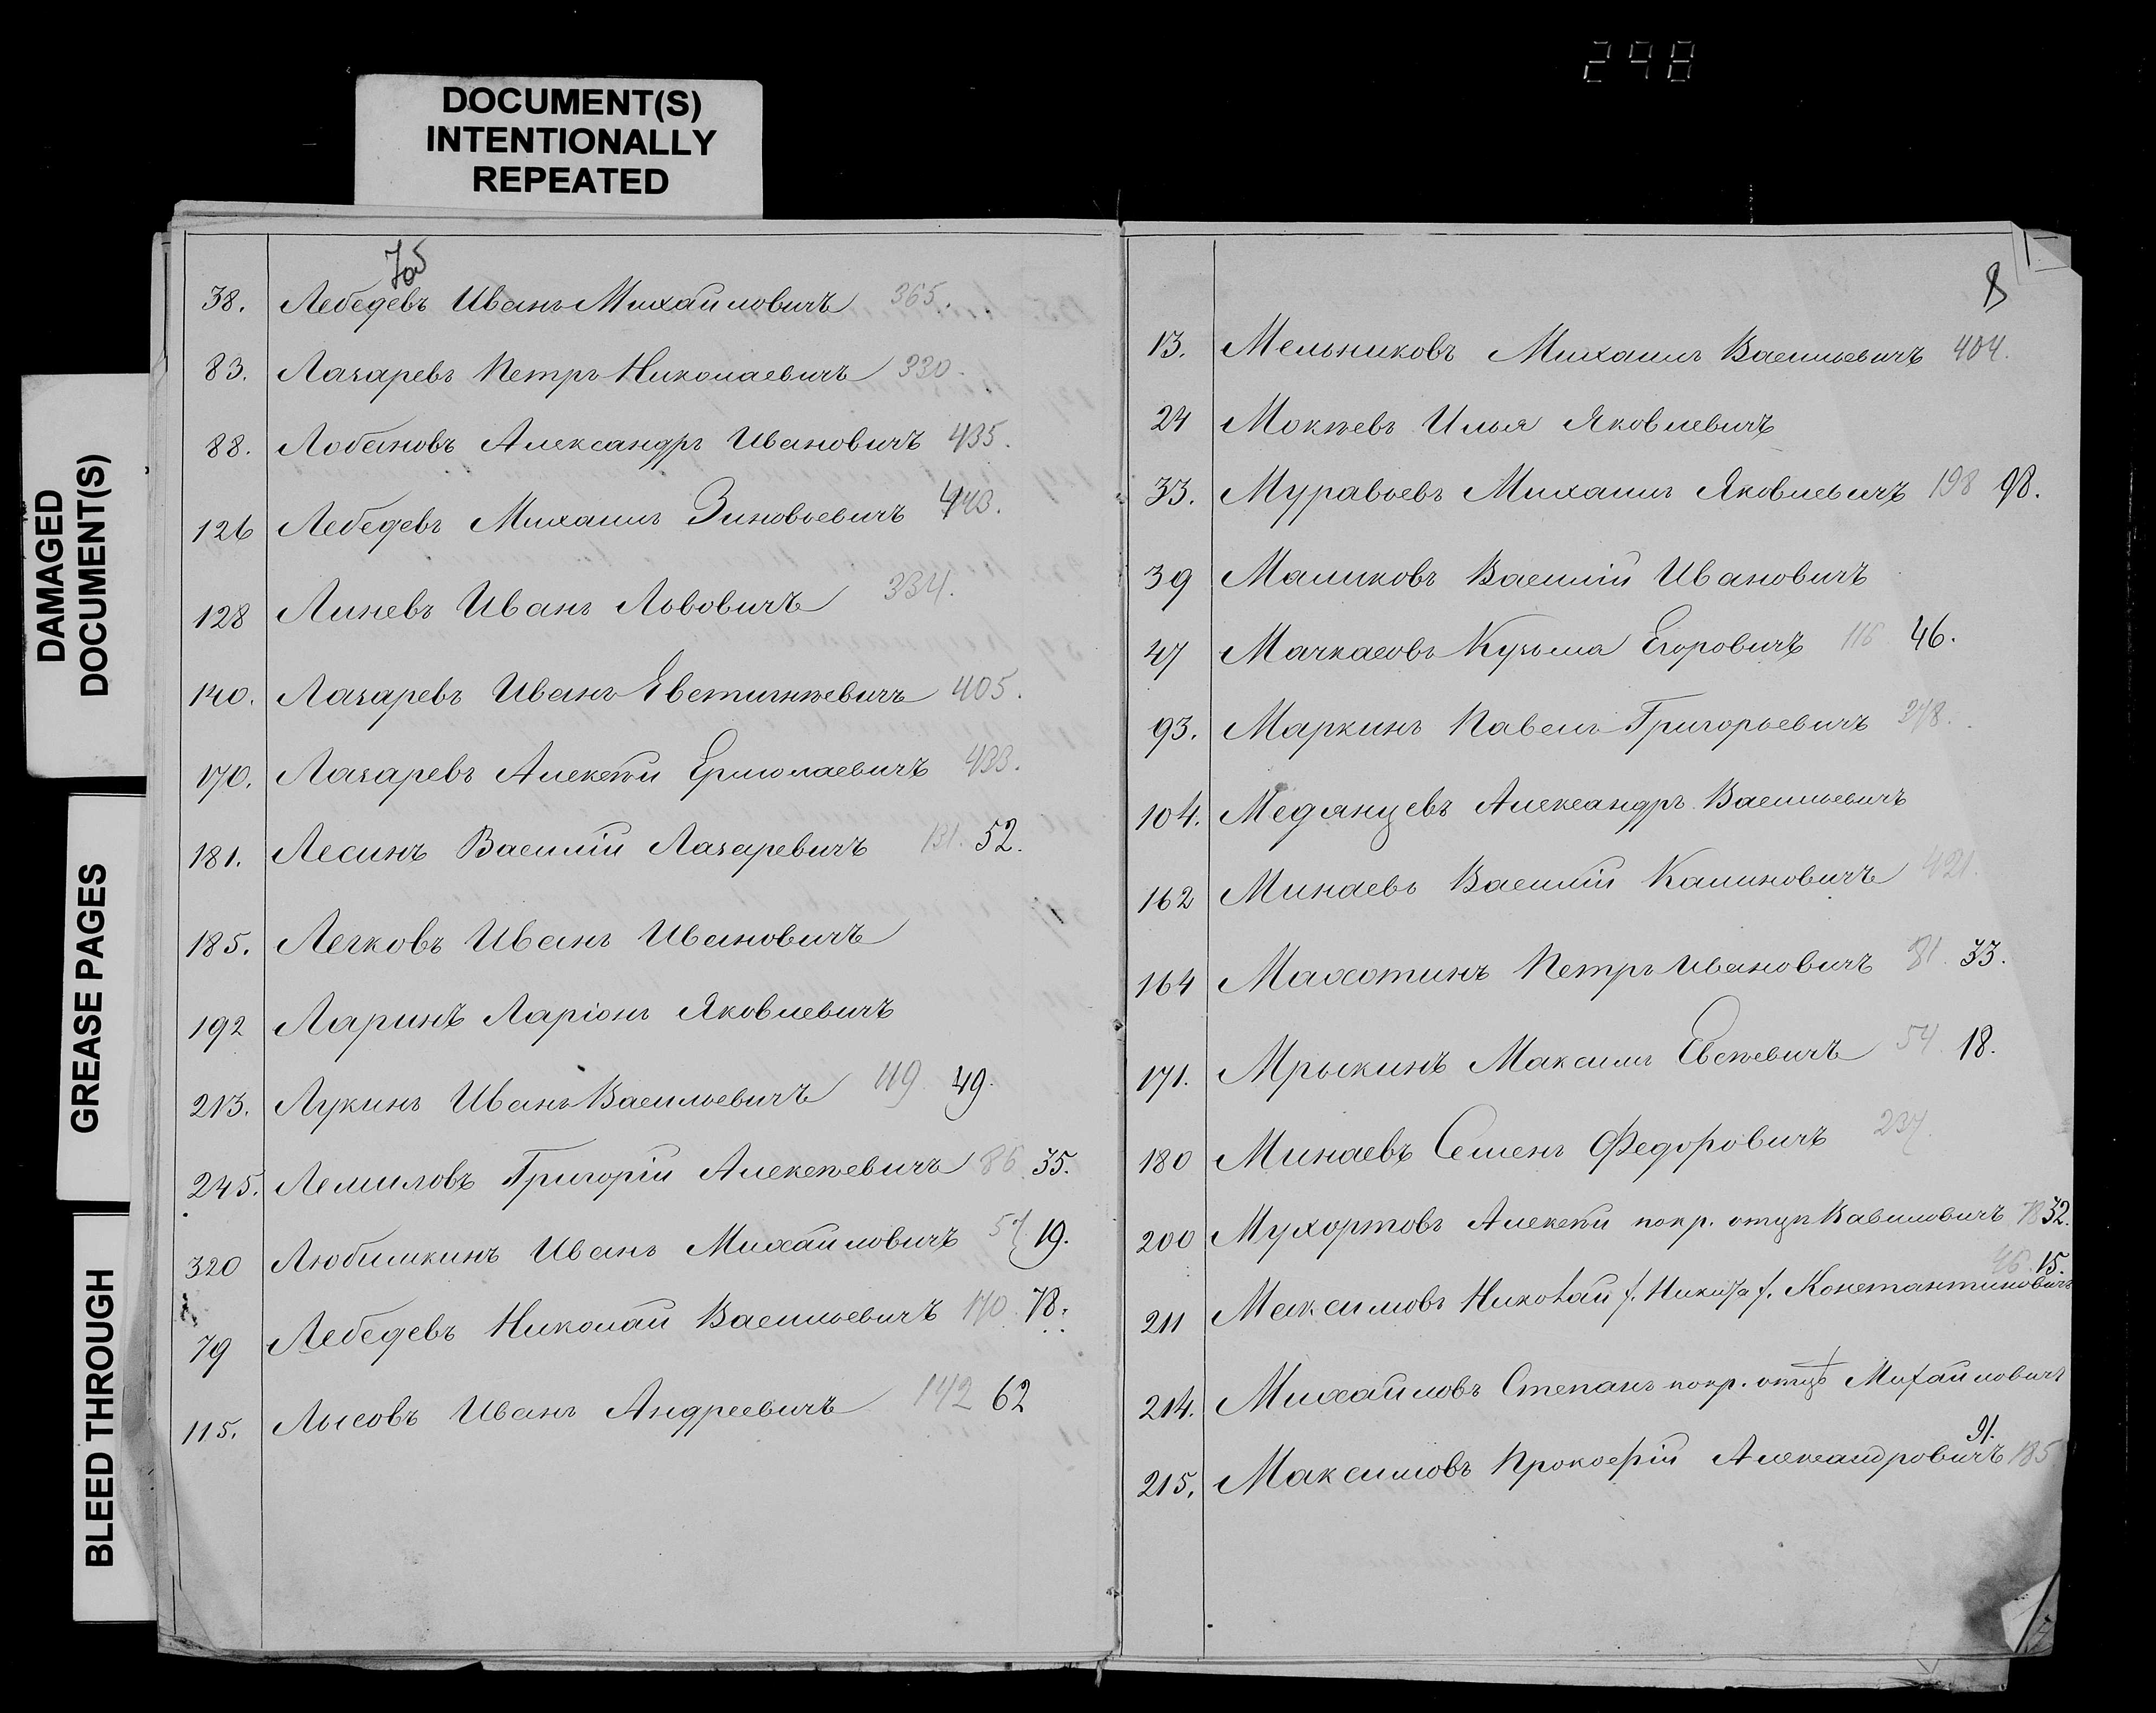 298
DOCUMENT(S)
INTENTIONALLY
REPEATED
DAMAGED
DOCUMENT(S)
GREASE PAGES
BLEED THROUGH
38. Лебедевъ Иванъ Михайловичъ 365.
83. Лазаревъ Петръ Николаевичъ 330.
88. Лобановъ Александръ Ивановичъ 435.
126 Лебедевъ Михаилъ Зиновьевичъ 443.
128 Линевъ Иванъ Львовичъ 334.
140. Лазаревъ Иванъ Евстигнѣевичъ 405.
170. Лазаревъ Алексѣй Ермолаевичъ 433.
181. Лесинъ Василій Лазаревичъ 131. 52.
185. Легковъ Иванъ Ивановичъ
192 Ларинъ Ларіонъ Яковлевичъ
213. Лукинъ Иванъ Васильевичъ 119. 49.
245. Лемиловъ Григорій Алексѣевичъ 86. 35.
320 Любимкинъ Иванъ Михайловичъ 57. 19.
79 Лебедевъ Николай Васильевичъ 170. 78.
115. Лысовъ Иванъ Андреевичъ 142 62
8
13. Мельниковъ Михаилъ Васильевичъ 404.
24 Мокѣевъ Илья Яковлевичъ
33. Муравьевъ Михаилъ Яковлевичъ 198 98.
39 Маликовъ Василій Ивановичъ
47 Мачкасовъ Кузьма Егоровичъ 116 46.
93. Маркинъ Павелъ Григорьевичъ 278.
104. Медянцевъ Александръ Васильевичъ
162 Минаевъ Василій Калиновичъ 421.
164 Махотинъ Петръ Ивановичъ 81. 33.
171. Мрыкинъ Максимъ Евсѣевичъ 54. 18.
180 Минаевъ Семенъ Федоровичъ 237.
200 Мухортовъ Алексѣй покр. отцу Вавиловичъ 78 32.
46. 15.
211 Максимовъ Николай f. Никита f. Константиновичъ
214. Михайловъ Степанъ покр. отцу Михайловичъ
91.
215. Максимовъ Прокофій Александровичъ 185